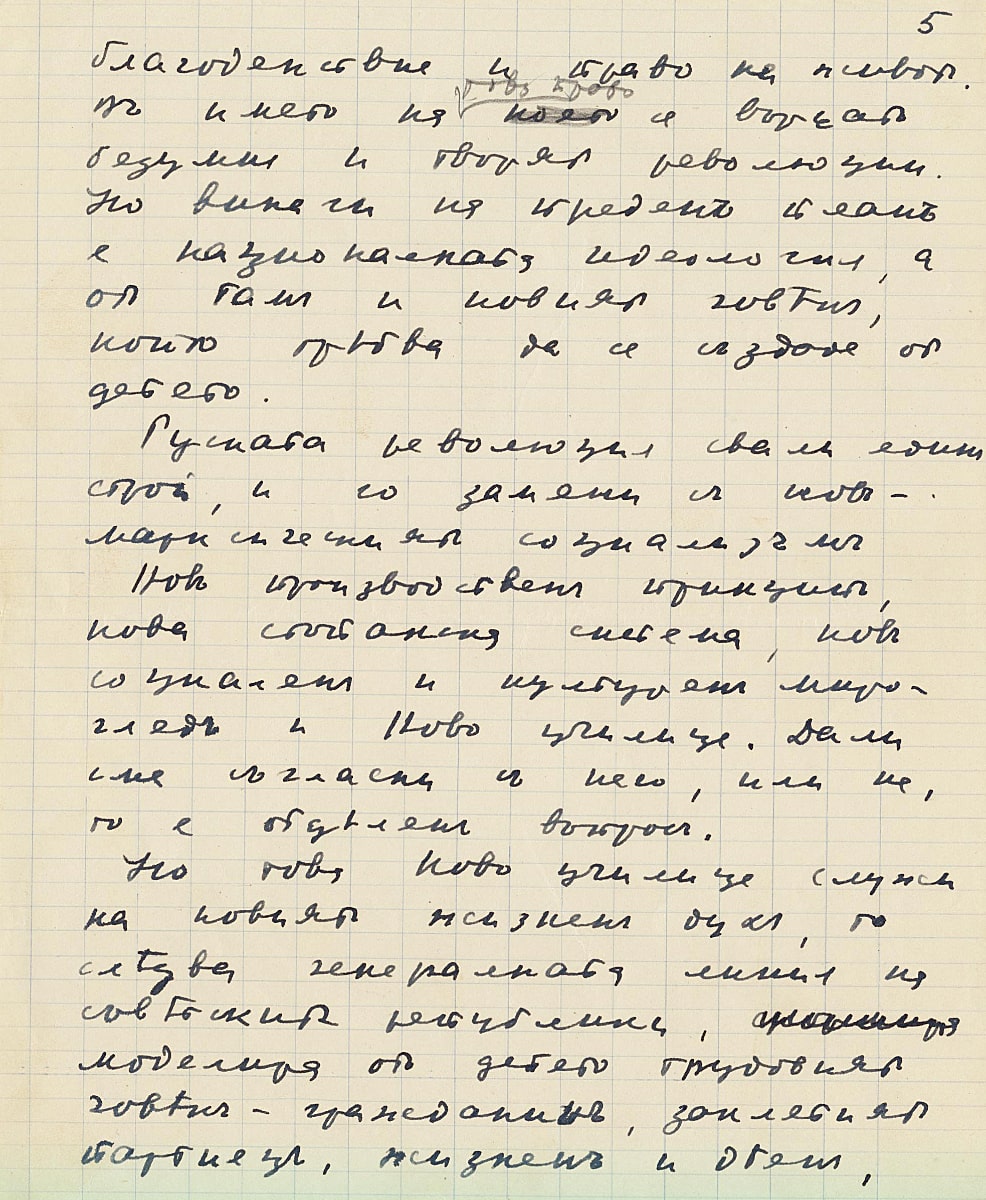 5
благоденствие и право на животъ.
това право
въ името на което се борятъ
безумни и творят революции.
Но винаги на преденъ планъ
е националната идеология, а
от там и новият човѣкъ,
който трѣбва да се създаде от
детето.
Руската революция свали единъ
строй, и го замени съ новъ -
марксическият социализъмъ
Новъ производственъ принципъ,
нова стопанска система, новъ
социаленъ и културенъ миро-
гледъ и Ново училище. Дали
сме съгласни съ него, или не,
то е отдѣленъ въпросъ.
Но това Ново училище служи
на новият жизненъ духъ, то
слѣдва генералната линия на
съвѣтскитѣ републики,
моделира от детето трудовият
човѣкъ - гражданинъ, заклетият
партиецъ, жизненъ и обенъ,